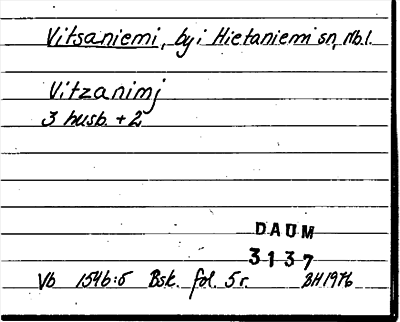 Vitsaniemi, by i Hietaniemi sn, Nb.l.
Vitzanimj
3 husb. + 2
DAUM
3137
Vb 1546:5 Bsk. fol. 5 r. BH 1976